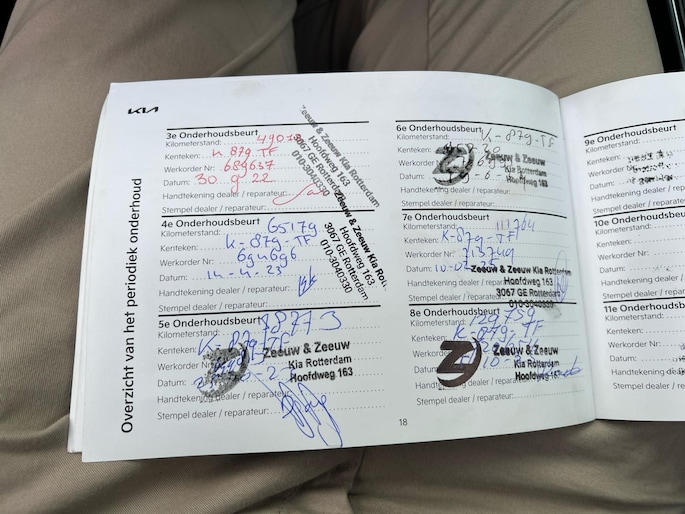 KIA
Overzicht van het periodiek onderhoud
3e Onderhoudsbeurt
Kilometerstand:
Kenteken: K-879-TF
Werkorder Nr: 689637
Datum: 30 9 22
Handtekening dealer / reparateur:
Stempel dealer / reparateur:
Zeeuw & Zeeuw Kia Rotterdam
Hoofdweg 163
3067 GE Rotterdam
010-3040330
4e Onderhoudsbeurt
Kilometerstand: 65179
Kenteken: K-879-TF
Werkorder Nr: 694696
Datum: 14-4-23
Handtekening dealer / reparateur:
Stempel dealer / reparateur:
Zeeuw & Zeeuw Kia Rott
Hoofdweg 163
3067 GE Rotterdam
010-3040330
5e Onderhoudsbeurt
Kilometerstand: 88273
Kenteken: K-879-TF
Werkorder
Datum:
Handtekening dealer / reparateur:
Stempel dealer / reparateur:
Zeeuw & Zeeuw
Kia Rotterdam
Hoofdweg 163
6e Onderhoudsbeurt
Kilometerstand:
Kenteken: K-879-TF
Werkorder Nr
Datum:
Handtekening dealer / reparateur:
Stempel dealer / reparateur:
Zeeuw & Zeeuw
Kia Rotterdam
Hoofdweg 163
7e Onderhoudsbeurt
Kilometerstand: 111764
Kenteken: K-879-TF
Werkorder Nr: 713749
Datum:
Handtekening dealer / reparateur:
Stempel dealer / reparateur:
Zeeuw & Zeeuw Kia Rotterdam
Hoofdweg 163
3067 GE Rotterdam
010-3040330
8e Onderhoudsbeurt
Kilometerstand: 129759
Kenteken: K-879-TF
Werkorder
Datum:
Handtekening dealer / reparateur:
Stempel dealer / reparateur:
Zeeuw & Zeeuw
Kia Rotterdam
Hoofdweg 163
18
9e Onderhoudsbeurt
Kilometerstand:
Kenteken:
Werkorder Nr:
Datum:
Handtekening dealer / re
Stempel dealer / repara
10e Onderhoudsbeu
Kilometerstand:
Kenteken:
Werkorder Nr:
Datum:
Handtekening dealer
Stempel dealer / rep
11e Onderhoudsb
Kilometerstand:
Kenteken:
Werkorder Nr:
Datum:
Handtekening de
Stempel dealer